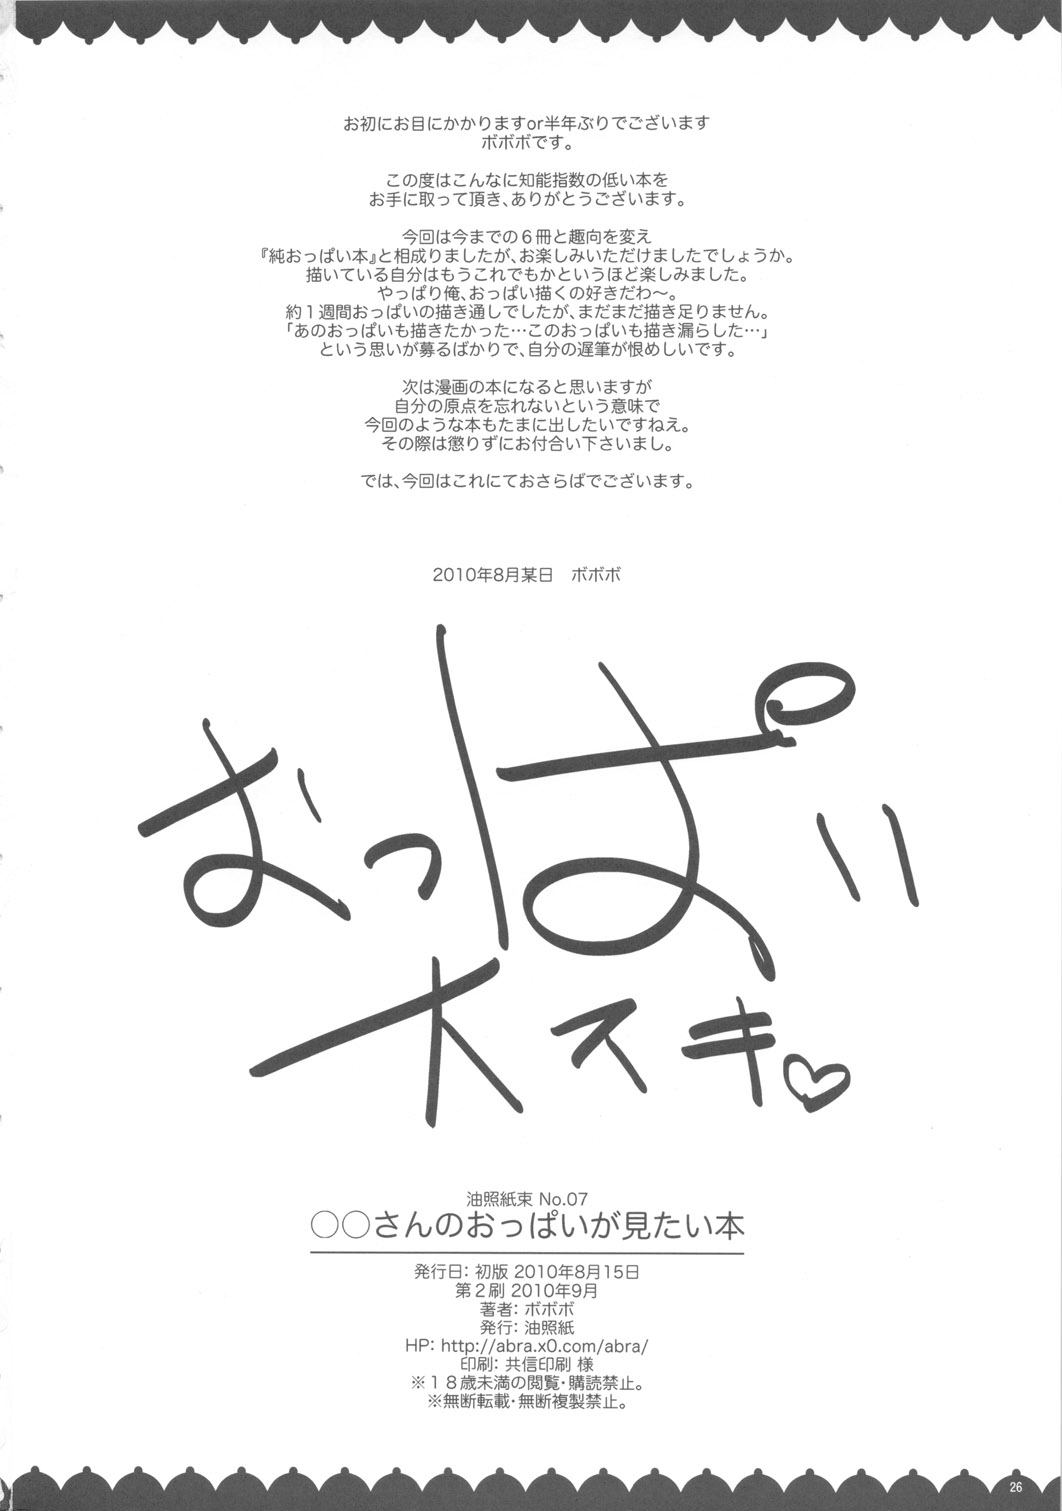 お初にお目にかかりますor半年ぶりでございます
ボボボです。
この度はこんなに知能指数の低い本を
お手に取って頂き、ありがとうございます。
今回は今までの６冊と趣向を変え
『純おっぱい本』と相成りましたが、お楽しみいただけましたでしょうか。
描いている自分はもうこれでもかというほど楽しみました。
やっぱり俺、おっぱい描くの好きだわ〜。
約１週間おっぱいの描き通しでしたが、まだまだ描き足りません。
「あのおっぱいも描きたかった…このおっぱいも描き漏らした…」
という思いが募るばかりで、自分の遅筆が恨めしいです。
次は漫画の本になると思いますが
自分の原点を忘れないという意味で
今回のような本もたまに出したいですねえ。
その際は懲りずにお付合い下さいまし。
では、今回はこれにておさらばでございます。
2010年8月某日　ボボボ
おっぱい
大スキ♡
油照紙束 No.07
○○さんのおっぱいが見たい本
発行日: 初版 2010年8月15日
第２刷 2010年9月
著者: ボボボ
発行: 油照紙
HP: http://abra.x0.com/abra/
印刷: 共信印刷 様
※１８歳未満の閲覧・購読禁止。
※無断転載・無断複製禁止。
26